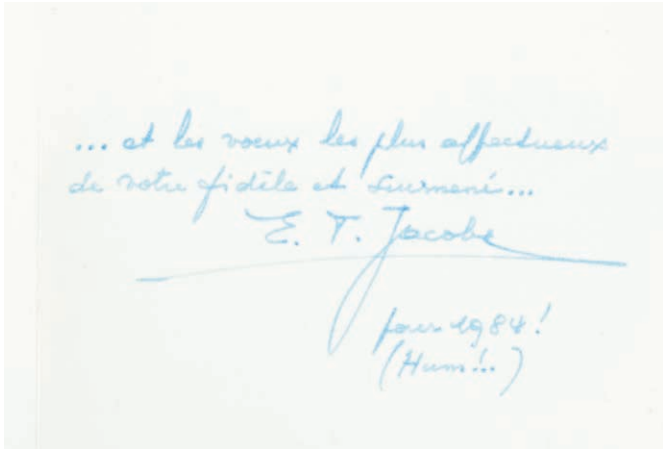 ... et les voeux les plus affectueux
de votre fidèle et surmené...
E. P. Jacobs
pour 1984!
(Hum!..)